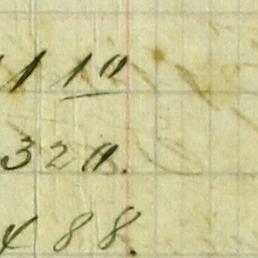 11 10
320.
488.